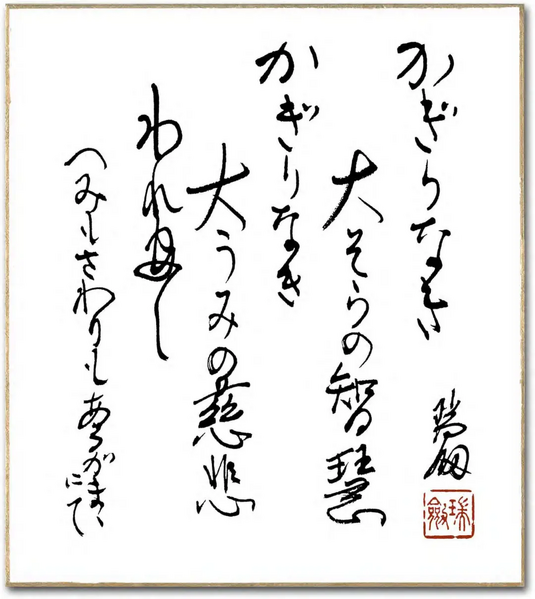 かぎりなき
大そらの智慧
かぎりなき
大うみの慈悲
われ母し
つみもさわりも
あるがまゝ
にて
瑞劔